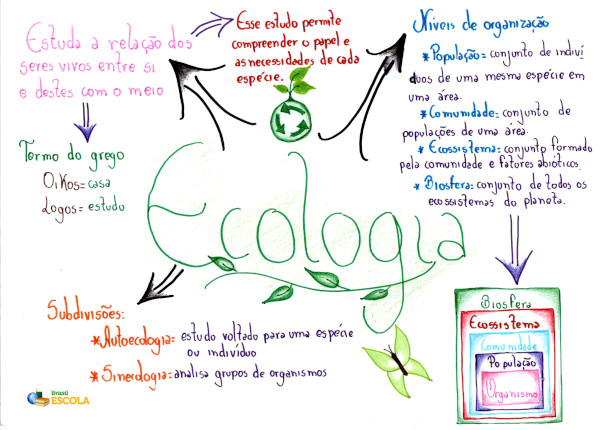 Estuda a relação dos
seres vivos entre si
e destes com o meio
Esse estudo permite
compreender o papel e
as necessidades de cada
espécie.
Níveis de organização
* População = conjunto de indiví
duos de uma mesma espécie em
uma área.
* Comunidade = conjunto de
populações de uma área.
* Ecossistema = conjunto formado
pela comunidade e fatores abióticos.
* Biosfera: conjunto de todos os
ecossistemas do planeta.
Termo do grego
Oikos = casa
Logos = estudo
Ecologia
Subdivisões:
* Autoecologia = estudo voltado para uma espécie
ou indivíduo
* Sinecologia = analisa grupos de organismos
Biosfera
Ecossistema
Comunidade
População
Organismo
Brasil
ESCOLA